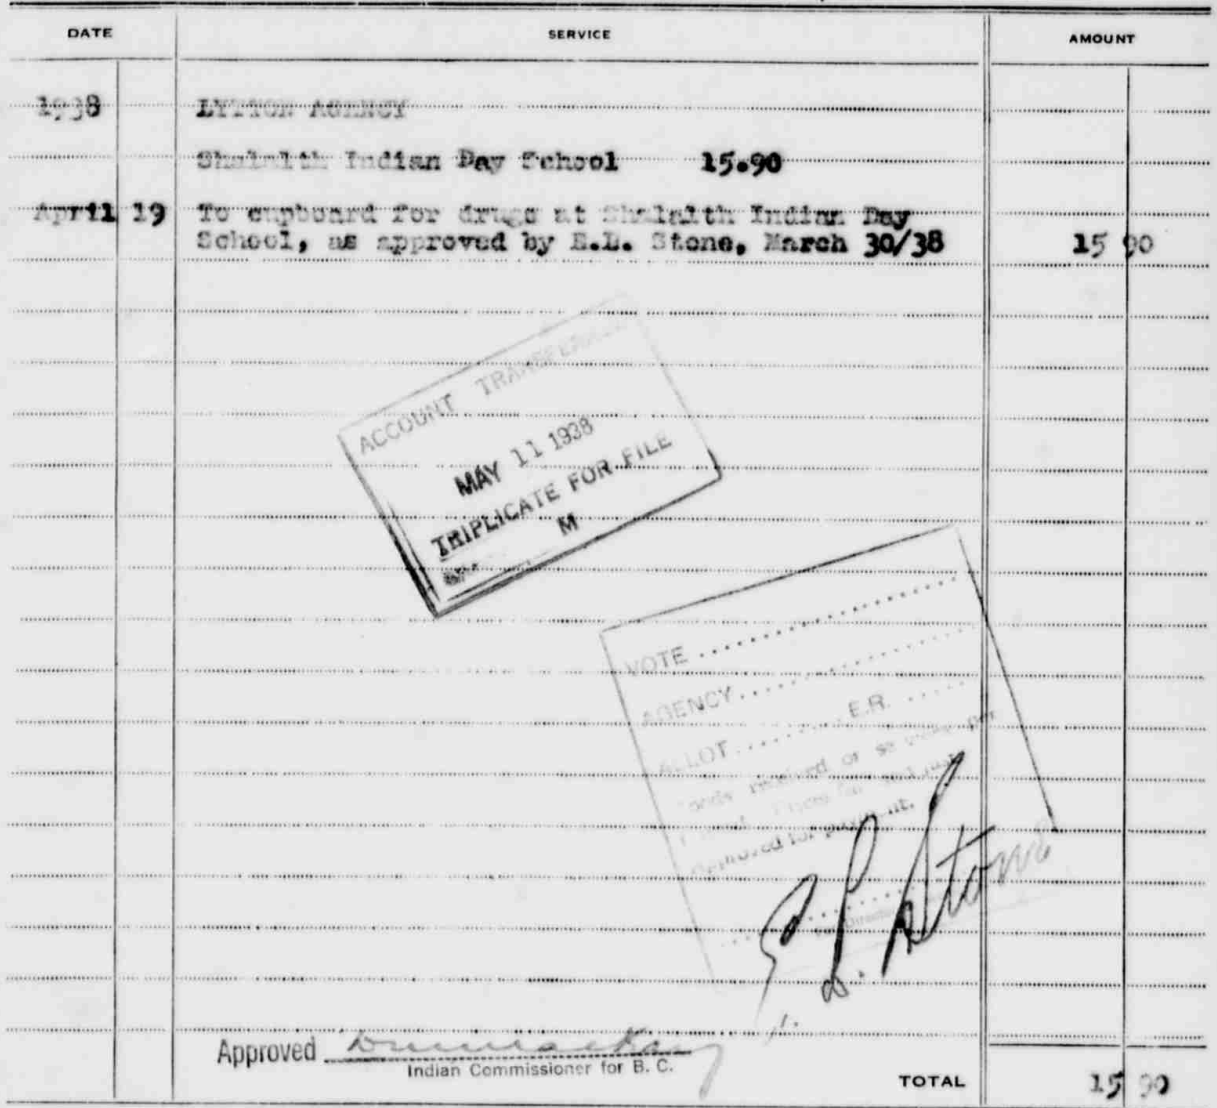 DATE SERVICE AMOUNT
1938 LYTTON AGENCY
Shalalth Indian Day School 15.90
April 19 To cupboard for drugs at Shalalth Indian Day
School, as approved by E.L. Stone, March 30/38 15 90
ACCOUNT
MAY 11 1938
TRIPLICATE FOR FILE
M
VOTE
AGENCY
E.R.
ALLOT
received or
Approved for payment.
E L Stone
Approved
Indian Commissioner for B. C.
TOTAL 15 90